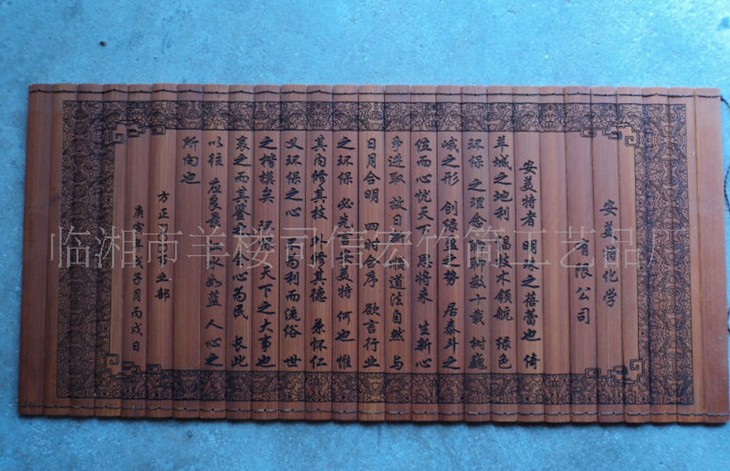 安美泊化学
有限公司
安美特者 明珠之蓓蕾也 倚
羊城之地利 倡技术领航 绿色
环保之理念 数十载 树巍
峨之形 创 之势 居泰斗之
位而心忧天下 思将来 生新心
争进取 故日新 顺道法自然 与
日月合明 四时合序 欲言行业
之环保 必先言安美特 何也 惟
其内修其技 外修其德 兼怀仁
义环保之心 不为利而流俗 世
之楷模矣 环保 天下之大事也
衷之而其鉴之 仁心为民 长此
以往 应良景 水如蓝 人心之
所向也
方正 事业部
庚寅年戊子月丙戌日
临湘市羊楼司信宏竹简工艺品厂